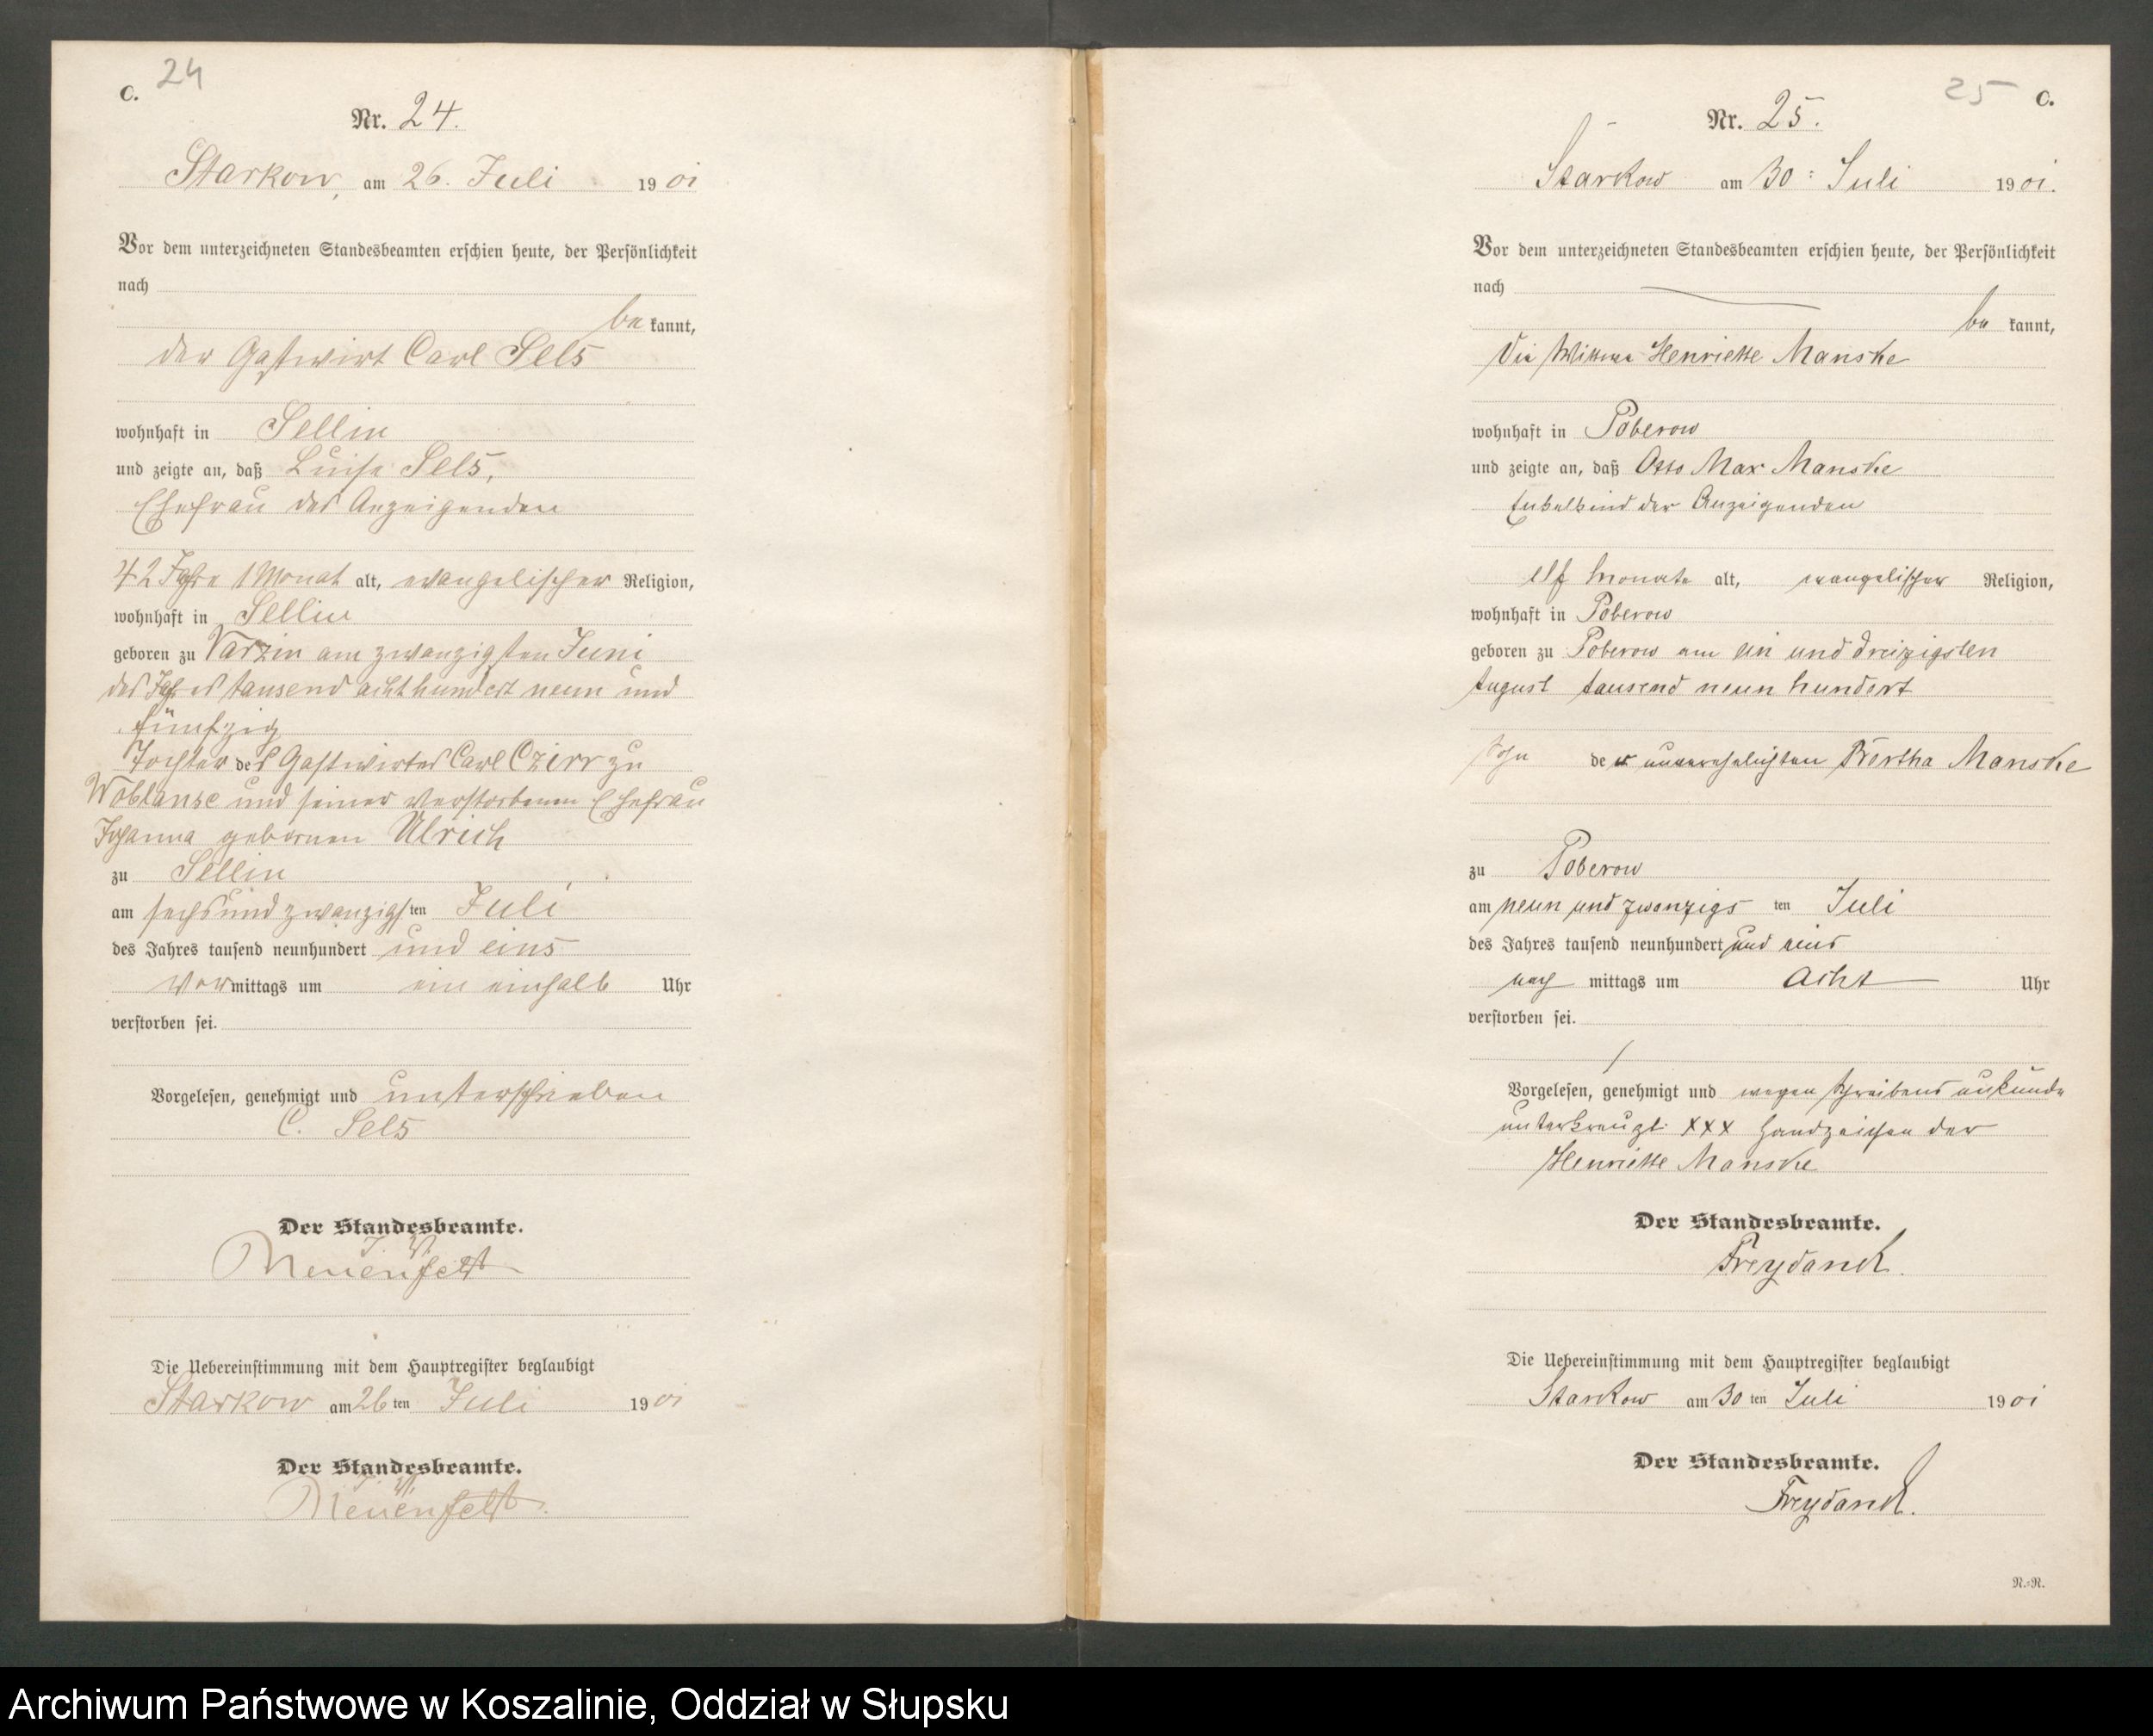 C. 24
Nr. 24.
Starkow, am 26. Juli 1901
Vor dem unterzeichneten Standesbeamten erschien heute, der Persönlichkeit
nach
be kannt,
der Gastwirt Carl Sels
wohnhaft in Sellin
und zeigte an, daß Luise Sels,
Ehefrau des Anzeigenden
42 Jahre 1 Monat alt, evangelischer Religion,
wohnhaft in Sellin
geboren zu Varzin am zwanzigsten Juni
des Jahres tausend achthundert neun und
fünfzig
Tochter des Gastwirtes Carl Czirr zu
Woblanse und seiner verstorbenen Ehefrau
Johanna gebornen Ulrich
zu Sellin
am sechsundzwanzigsten Juli
des Jahres tausend neunhundert und eins
Vormittags um ein einhalb Uhr
verstorben sei.
Vorgelesen, genehmigt und unterschrieben
C. Sels
Der Standesbeamte.
J. V.
Neuenfeldt
Die Uebereinstimmung mit dem Hauptregister beglaubigt
Starkow am 26 ten Juli 1901
Der Standesbeamte.
J. V.
Neuenfeldt.
25 C.
Nr. 25.
Starkow am 30: Juli 1901.
Vor dem unterzeichneten Standesbeamten erschien heute, der Persönlichkeit
nach
be kannt,
Die Wittwe Henriette Manske
wohnhaft in Poberow
und zeigte an, daß Otto Max Manske
Enkelkind der Anzeigenden
elf Monate alt, evangelischer Religion,
wohnhaft in Poberow
geboren zu Poberow am ein und dreizigsten
August tausend neun hundert
Sohn der unverehelichten Bertha Manske
zu Poberow
am neun und zwanzigs ten Juli
des Jahres tausend neunhundert und eins
nach mittags um Acht Uhr
verstorben sei.
Vorgelesen, genehmigt und wegen Schreibens unkunde
unterkreuzt XXX Handzeichen der
Henriette Manske
Der Standesbeamte.
Freydanck.
Die Uebereinstimmung mit dem Hauptregister beglaubigt
Starkow am 30 ten Juli 1901
Der Standesbeamte.
Freydanck.
N.-N.
Archiwum Państwowe w Koszalinie, Oddział w Słupsku